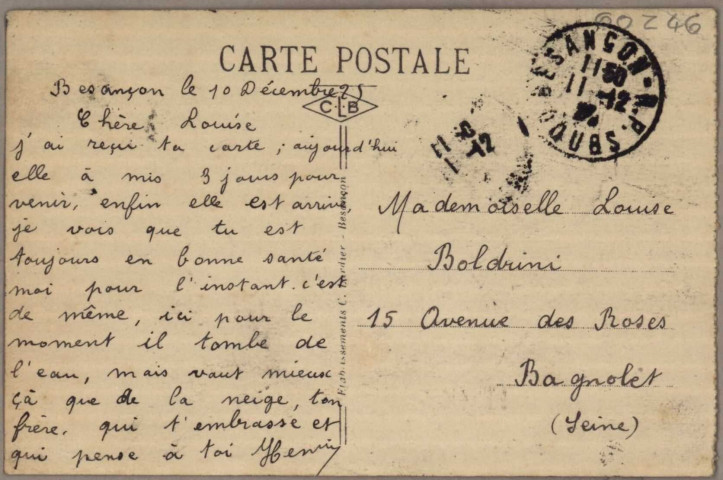 60246
CARTE POSTALE
CLB
BESANÇON - R.P. DOUBS
11 30
11 - 12
11 30
12
Besançon le 10 Décembre 25
Chère Louise
j'ai reçu ta carte, aujourd'hui
elle à mis 3 jours pour
venir, enfin elle est arrivé,
je vois que tu est
toujours en bonne santé
moi pour l'instant c'est
de même, ici pour le
moment il tombe de
l'eau, mais vaut mieux
çà que de la neige, ton
frère, qui t'embrasse et
qui pense à toi Henri
Etablissements C. Lardier - Besançon
Mademoiselle Louise
Boldrini
15 Avenue des Roses
Bagnolet
(Seine)